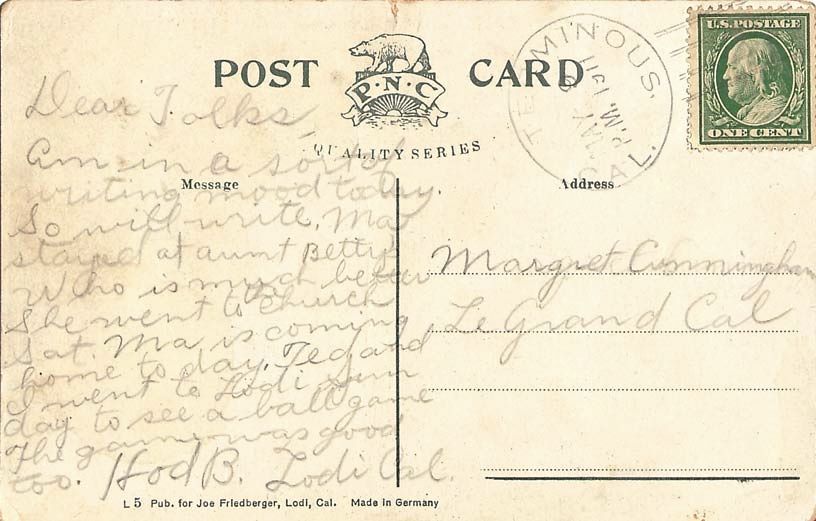 POST CARD
P·N·C
QUALITY SERIES
TERMINOUS, CAL.
MAY 9
P.M. 1911
U.S. POSTAGE
ONE CENT
Message
Address
Dear Folks,
Am in a sort of
writing mood today.
So will write, Ma
stayed at aunt Betty's
Who is much better
She went to Church
Sat. Ma is coming
home to day. Ted and
I went to Lodi Sun
day to see a ball game
The game was good
too. Hod B. Lodi Cal.
Margret Cunningham
Le Grand Cal
L 5 Pub. for Joe Friedberger, Lodi, Cal. Made in Germany